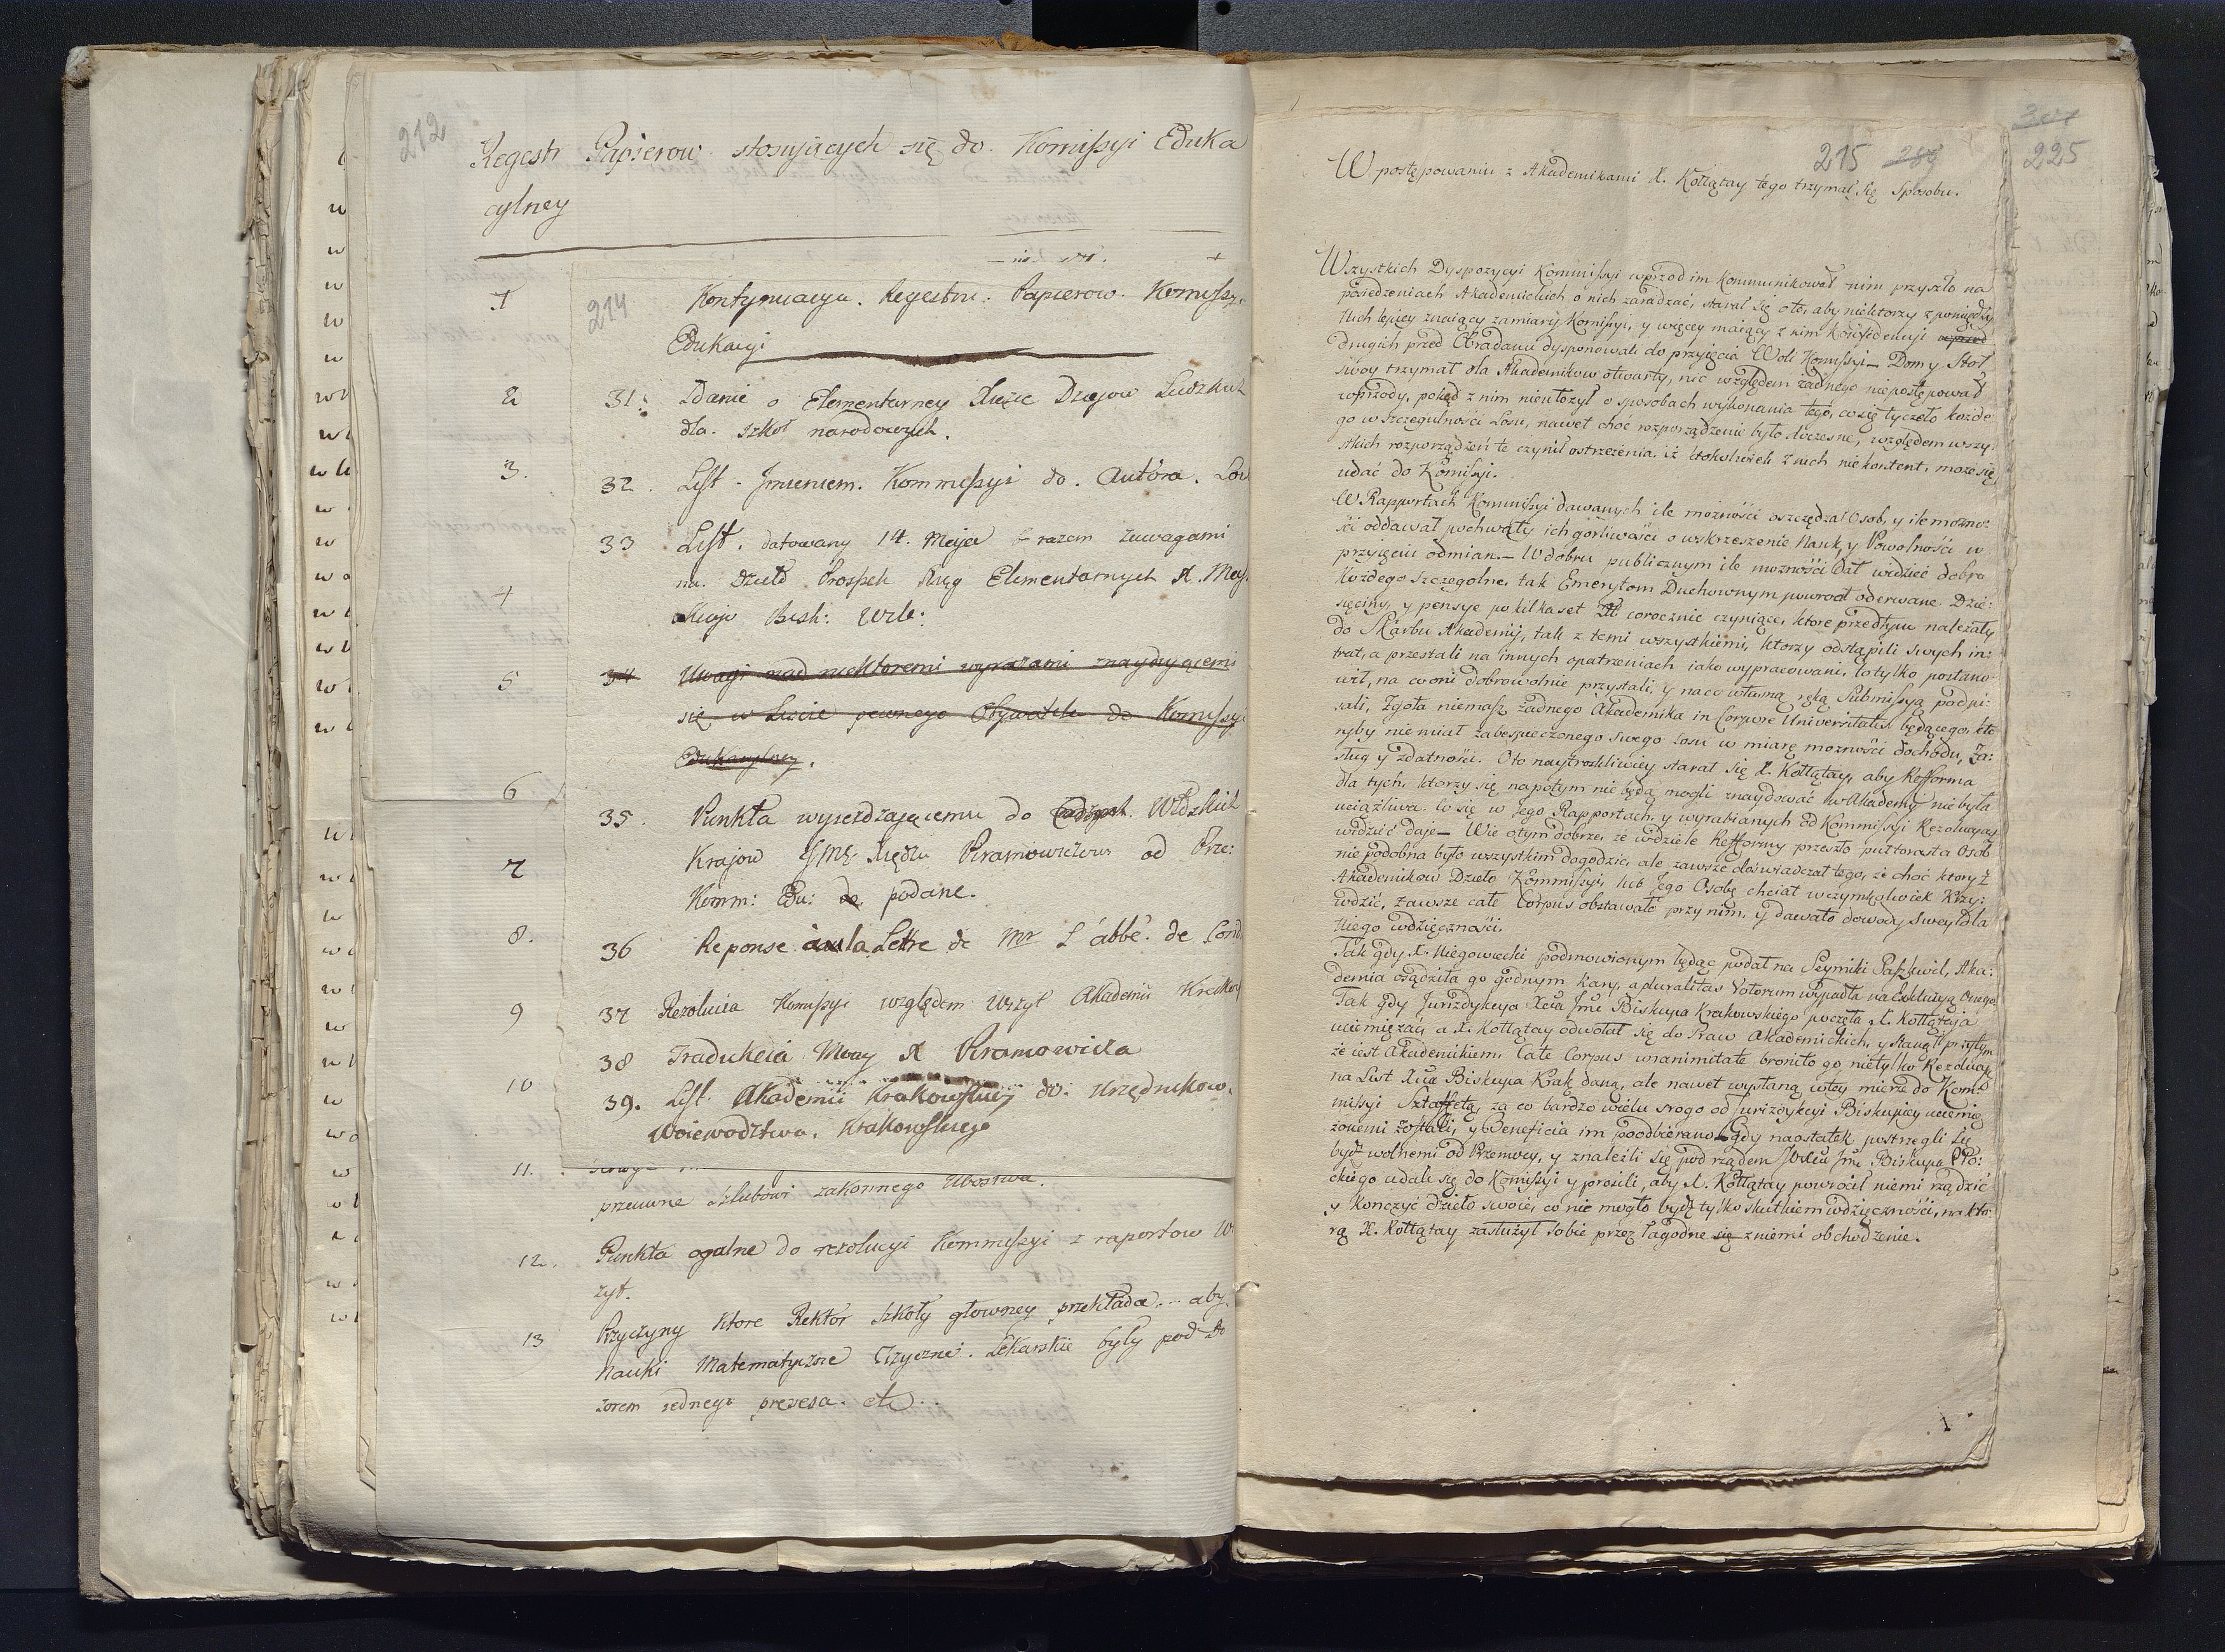 212
Regestr Papierow stosujących się do Komissyi Eduka
cylney
1
2
3.
4
5
6
7
8.
9
10
214
Kontynuacya. Regestru. Papierow. Komissyi
Edukacyi
31. Zdanie o Elementarney Xięże Dziejow Ludzkich
dla. szkoł narodowych.
32. List. Imieniem. Kommissyi do. Autóra.
33 List. datowany 14. Maja razem z uwagami
na. dzieło Prospekt Xiąg Elementarnych X.
Bisk: Wile:
34 Uwagi nad niektoremi wyrazami znayduiącemi
się w Liście pewnego Obywatela do Komissyi
Edukacylney.
35. Punkta wyieżdzaiącemu do Włoskich
Krajow JMX. Xiędzu Piramowiczowi od Prze:
Komm: Edu: podane.
36 Reponse a la Lettre de Mr L'abbé. de Cond
37 Rezolucia Komissyi względem Wizyt Akademii Krakow
38 Tradukcia Mowy X Piramowicza
39. List Akademii Krakowskiey do. Urzędnikow.
Woiewodztwa. Krakowskiego
11.
przeciwne szlubowi zakonnego Ubostwa.
12. Punkta ogulne do rezolucyi Kommissyi z raportow Wi
zyt.
13 Przyczyny ktore Rektor Szkoły głowney przekłada... aby
Nauki Matematyczne Fizyczne. Lekarskie były pod do
zorem iednego prezesa. etc.
301
225
215
W postępowaniu z Akademikami X. Kołłątay tego trzymał się sposobu.
Wszystkich Dyspozycyi Kommissyi wprzod im kommunikował nim przyszło na
posiedzeniach Akademickich o nich zaradzać, starał się oto, aby niektorzy z pomiędzy
Nich lepiey znaiący zamiary Komissyi, y więcey maiący z nim konfidencyi wprzod
drugich przed Obradami dysponowali do przyięcia Woli Komissyi — Dom y Stoł
swoy trzymał dla Akademikow otwarty, nic względem żadnego niepostępował
wprzody, pokąd z nim nieułożył o sposobach wykonania tego, co się tyczeło każde
go w szczegulności Losu, nawet choć rozporządzenie było doczesne, względem wszy
stkich rozporządzeń te czynił ostrzeżenia, iż ktokolwiek z nich niekontent, może się
udać do Komissyi.
W Rapportach Kommissyi dawanych ile możności oszczędzał Osob, y ile możno:
ści oddawał pochwały ich gorliwości o wskrzeszenie Nauk, y Powolności w
przyięciu odmian. — W dobru publicznym ile możności dał widzieć dobro
każdego szczegolne, tak Emerytom Duchownym powrocił oderwane Dzie:
sięciny, y pensye po kilkaset Zł corocznie czyniące, ktore przedtym należały
do Skarbu Akademij, tak z temi wszystkiemi, ktorzy odstąpili swych in:
trat, a przestali na innych opatrzeniach iako wypracowani, to tylko postano
wił, na co oni dobrowolnie przystali, y na co własną ręką Submissyą podpi:
sali, Zgoła niemasz żadnego Akademika in Corpore Universitatis będącego, kto
ryby nie miał zabespieczonego swego losu w miarę możności dochodu, Za:
sług y zdatności. Oto naytroskliwiey starał się X. Kołłątay, aby Refforma
dla tych, ktorzy się napotym nie będą mogli znaydować w Akademij nie była
uciążliwa. Co się w Jego Rapportach, y wyrabianych od Kommissyi Rezolucyach
widzieć daje — Wie otym dobrze, że w dziele Refformy przeszło pułtorasta Osob
niepodobna było wszystkim dogodzić, ale zawsze doświadczał tego, że choć ktory z
Akademikow Dzieło Kommissyi, lub Jego Osobę chciał w czymkolwiek krzy:
wdzić, zawsze całe Corpus obstawało przy nim, y dawało dowody swey dla
niego wdzięczności.
Tak gdy X. Niegowiecki podmowionym będąc podał na Seymiki Paszkwil, Aka:
demia osądziła go godnym kary, a pluralitas Votorum wypadła na Exkluzyą Onego
Tak gdy Jurizdykcya Xcia Jmci Biskupa Krakowskiego poczęła X. Kołłątaja
uciemiężać, a X. Kołłątay odwołał się do Praw Akademickich, y stanął przytym
że iest Akademikiem, Całe Corpus unanimitate broniło go nietylko Rezolucyą
na List Xcia Biskupa Krak. daną, ale nawet wysłaną w tey mierze do Kom:
missyi Sztaffetą, za co bardzo wielu srogo od Jurizdykcyi Biskupiey uciemię
żonemi zostali, y Beneficia im poodbierano. Gdy naostatek postrzegli się
bydź wolnemi od Przemocy, y znaleźli się pod rządem JWXcia Jmci Biskupa Pło:
ckiego udali się do Komissyi y prosili, aby X. Kołłątay powrocił niemi rządzić
y kończyć dzieło swoie, co nie mogło bydź tylko skutkiem wdzięczności, na kto
rą X. Kołłątay zasłużył sobie przez łagodne się z niemi obchodzenie.